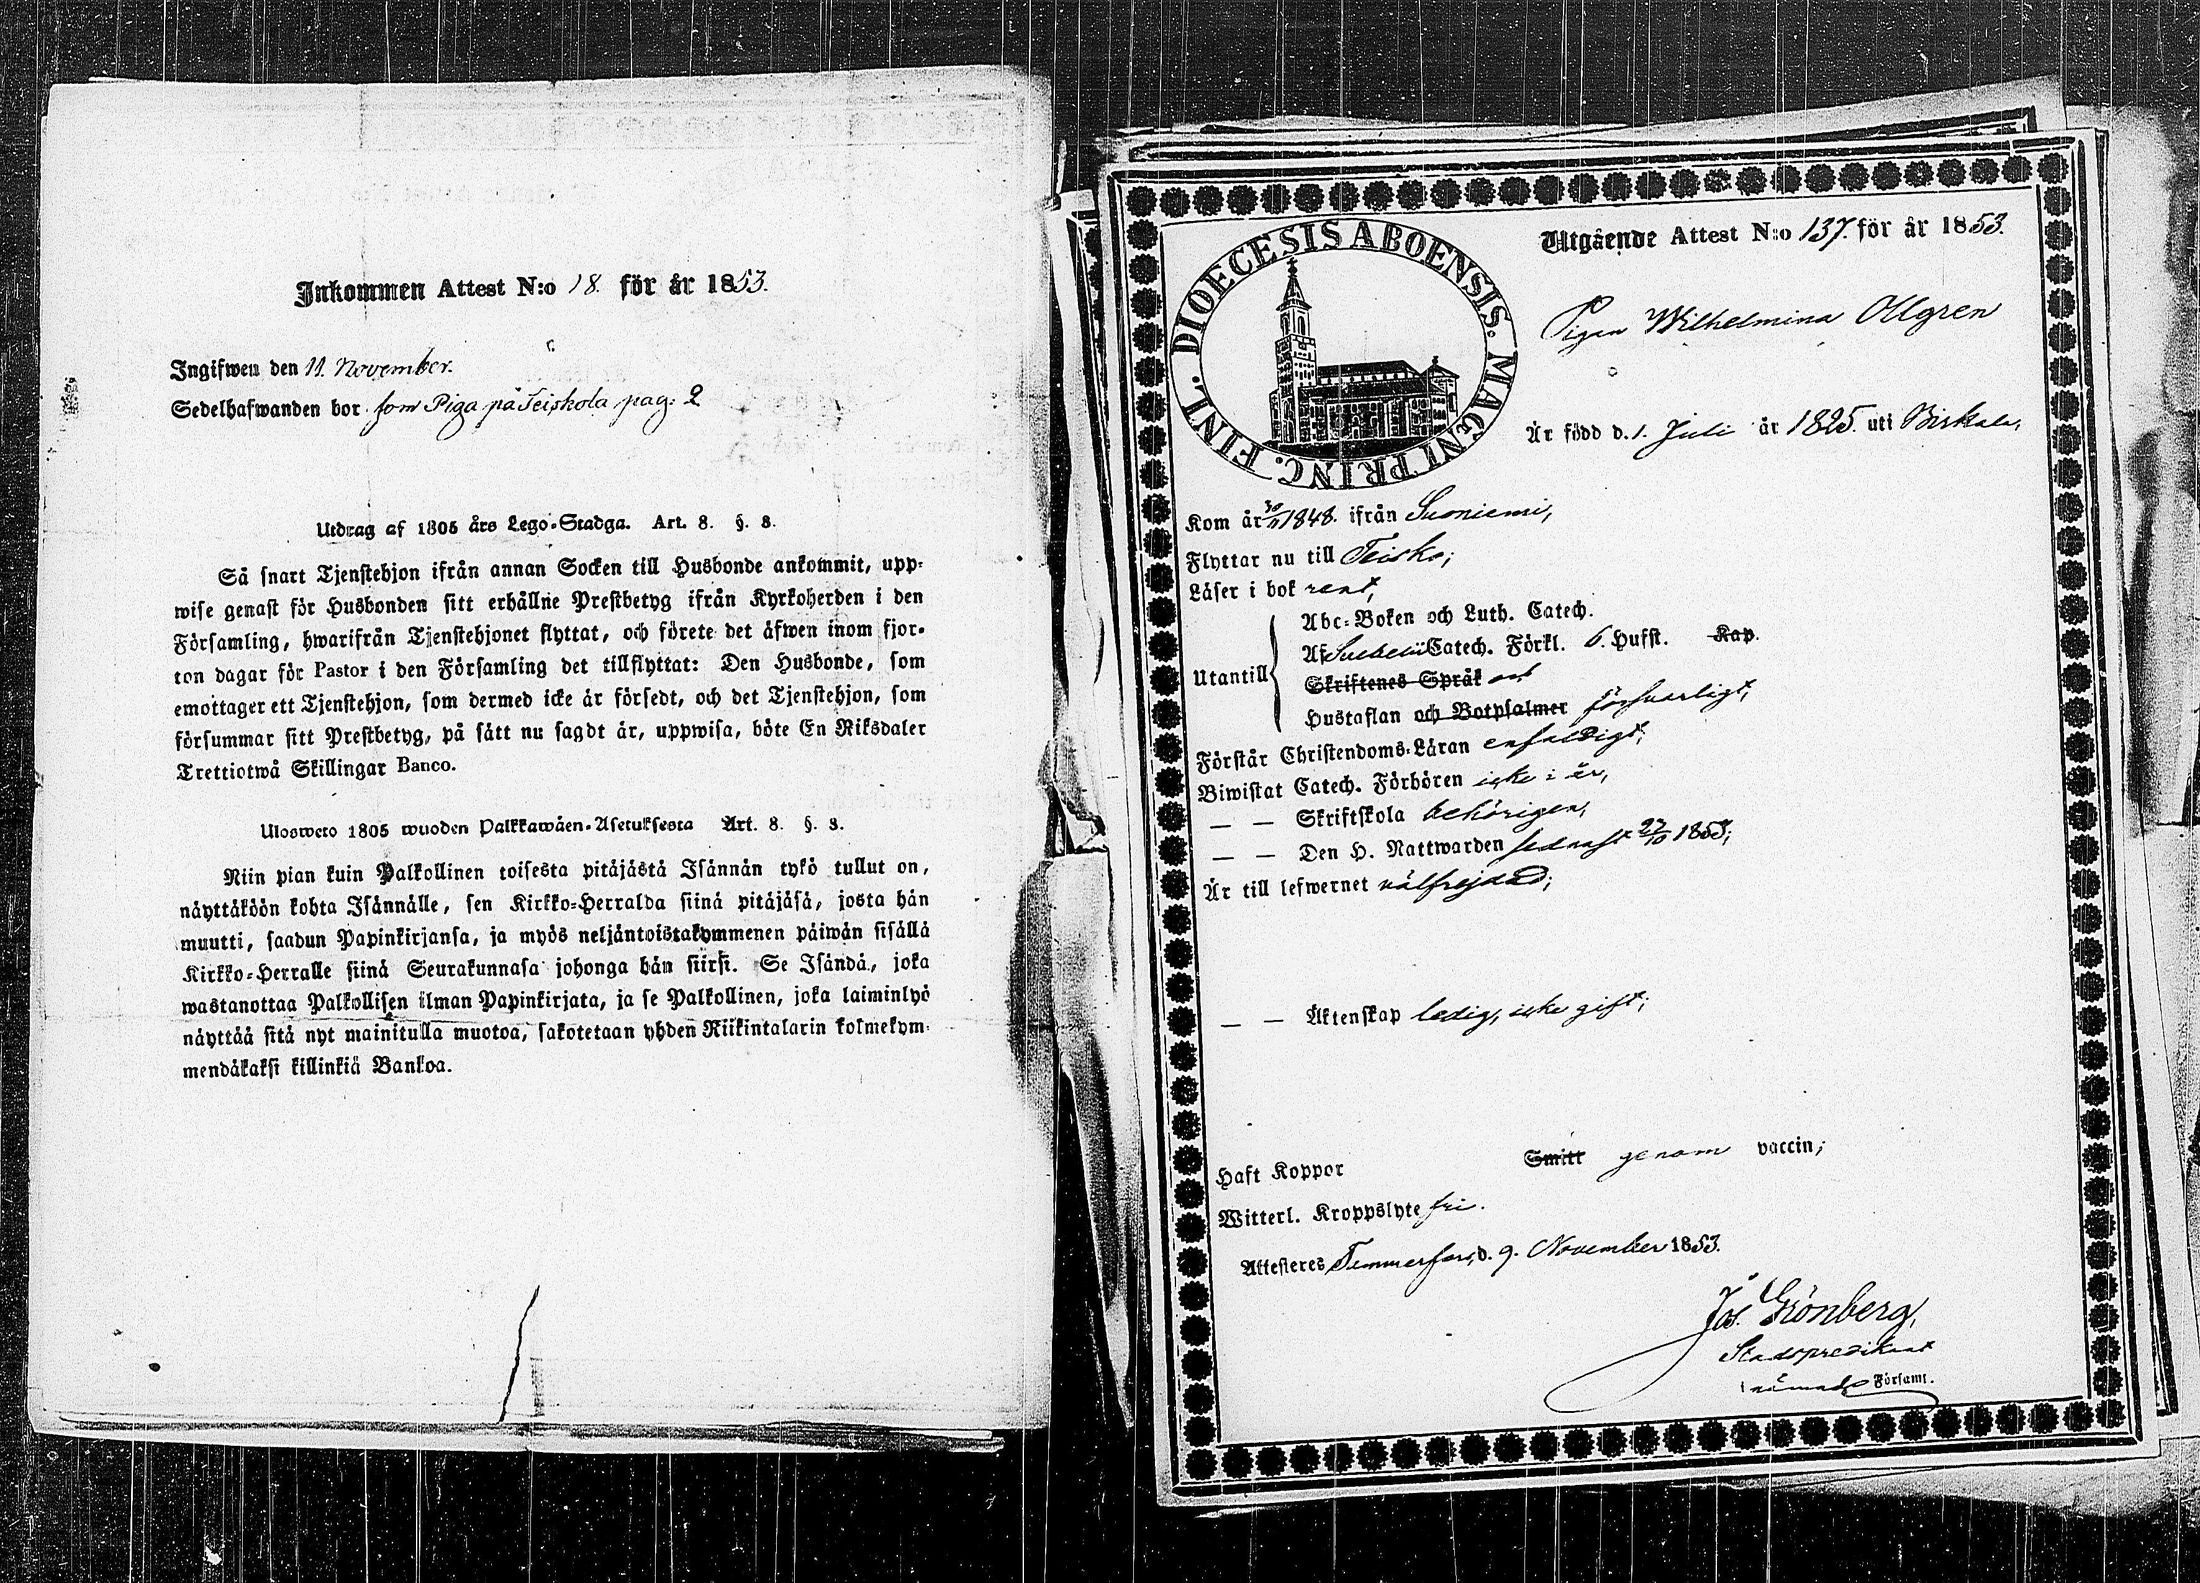 Inkommen Attest N:o 18. för år 1853.
Ingifwen den 11. November.
Sedelhafwanden bor som Piga på Teiskola pag: 2
Utdrag af 1805 års Lego-Stadga. Art. 8. §. 8.
Så snart Tjenstehjon ifrån annan Socken till Husbonde ankommit, upp-
wise genast för Husbonden sitt erhållne Prestbetyg ifrån Kyrkoherden i den
Församling, hwarifrån Tjenstehjonet flyttat, och förete det äfwen inom fjor-
ton dagar för Pastor i den Församling det tillflyttat: Den Husbonde, som
emottager ett Tjenstehjon, som dermed icke är försedt, och det Tjenstehjon, som
försummar sitt Prestbetyg, på sätt nu sagdt är, uppwisa, böte En Riksdaler
Trettiotwå Skillingar Banco.
Ulosweto 1805 wuoden Palkkawäen-Asetuksesta Art. 8. §. 8.
Niin pian kuin Palkollinen toisesta pitäjästä Isännän tykö tullut on,
näyttäköön kohta Isännälle, sen Kirkko-Herralda siinä pitäjäsä, josta hän
muutti, saadun Papinkirjansa, ja myös neljäntoistakymmenen päiwän sisällä
Kirkko-Herralle siinä Seurakunnasa johonga hän siirsi. Se Isändä, joka
wastanottaa Palkollisen ilman Papinkirjata, ja se Palkollinen, joka laiminlyö
näyttää sitä nyt mainitulla muotoa, sakotetaan yhden Riikintalarin kolmekym-
mendäkaksi killinkiä Bankoa.
DIOECESIS ABOENSIS. MAGNI PRINC. FINL.
Utgående Attest N:o 137. för år 1853.
Pigan Wilhelmina Ollgren
Är född d. 1. Juli år 1825. uti Birkala,
Kom år 30/11 1848. ifrån Suoniemi,
Flyttar nu till Teisko;
Läser i bok rent,
Utantill
Abc-Boken och Luth. Catech.
Af Svebelii Catech. Förkl. 6. Hufst. Kap.
Skriftenes Språk och
Hustaflan och Botpsalmer försvarligt,
Förstår Christendoms-Läran enfaldigt;
Biwistat Catech. Förhören icke i år,
— — Skriftskola behörigen,
— — Den H. Nattwarden sednast 23/10 1853;
Är till lefwernet välfrejdad;
— — Äktenskap ledig, icke gift;
Haft Koppor Smitt genom vaccin;
Witterl. Kroppslyte fri.
Attesteres Tammerfors, d. 9. November 1853.
Jos. Grönberg,
Stadspredikant
i nämnde Församl.